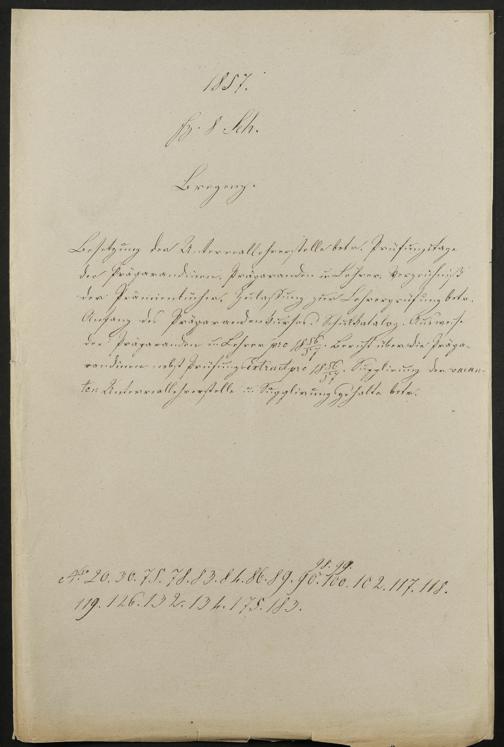 1857.
Fz. 8 Sch.
Bregenz.
Besetzung der Unterreallehrerstelle betr. Prüfungstage
der Präparandinen, Präparanden u. Lehrer. Verzeichniß
der Prämienbücher. Zulassung zur Lehrerprüfung betr.
Anfang des Präparandenkurses. Schulkatalog. Ausweise
der Präparanden u. Lehrer pro 1856/57. Bericht über die Präpa-
randinen nebst Prüfungs Extract pro 1856/57. Supplirung der vakan-
ten Unterreallehrerstelle u. Supplirungsgehalte betr.
98. 99.
No. 20. 30. 75. 78. 83. 84. 86. 89. 90. 100. 102. 117. 118.
119. 126. 132. 134. 175. 183.